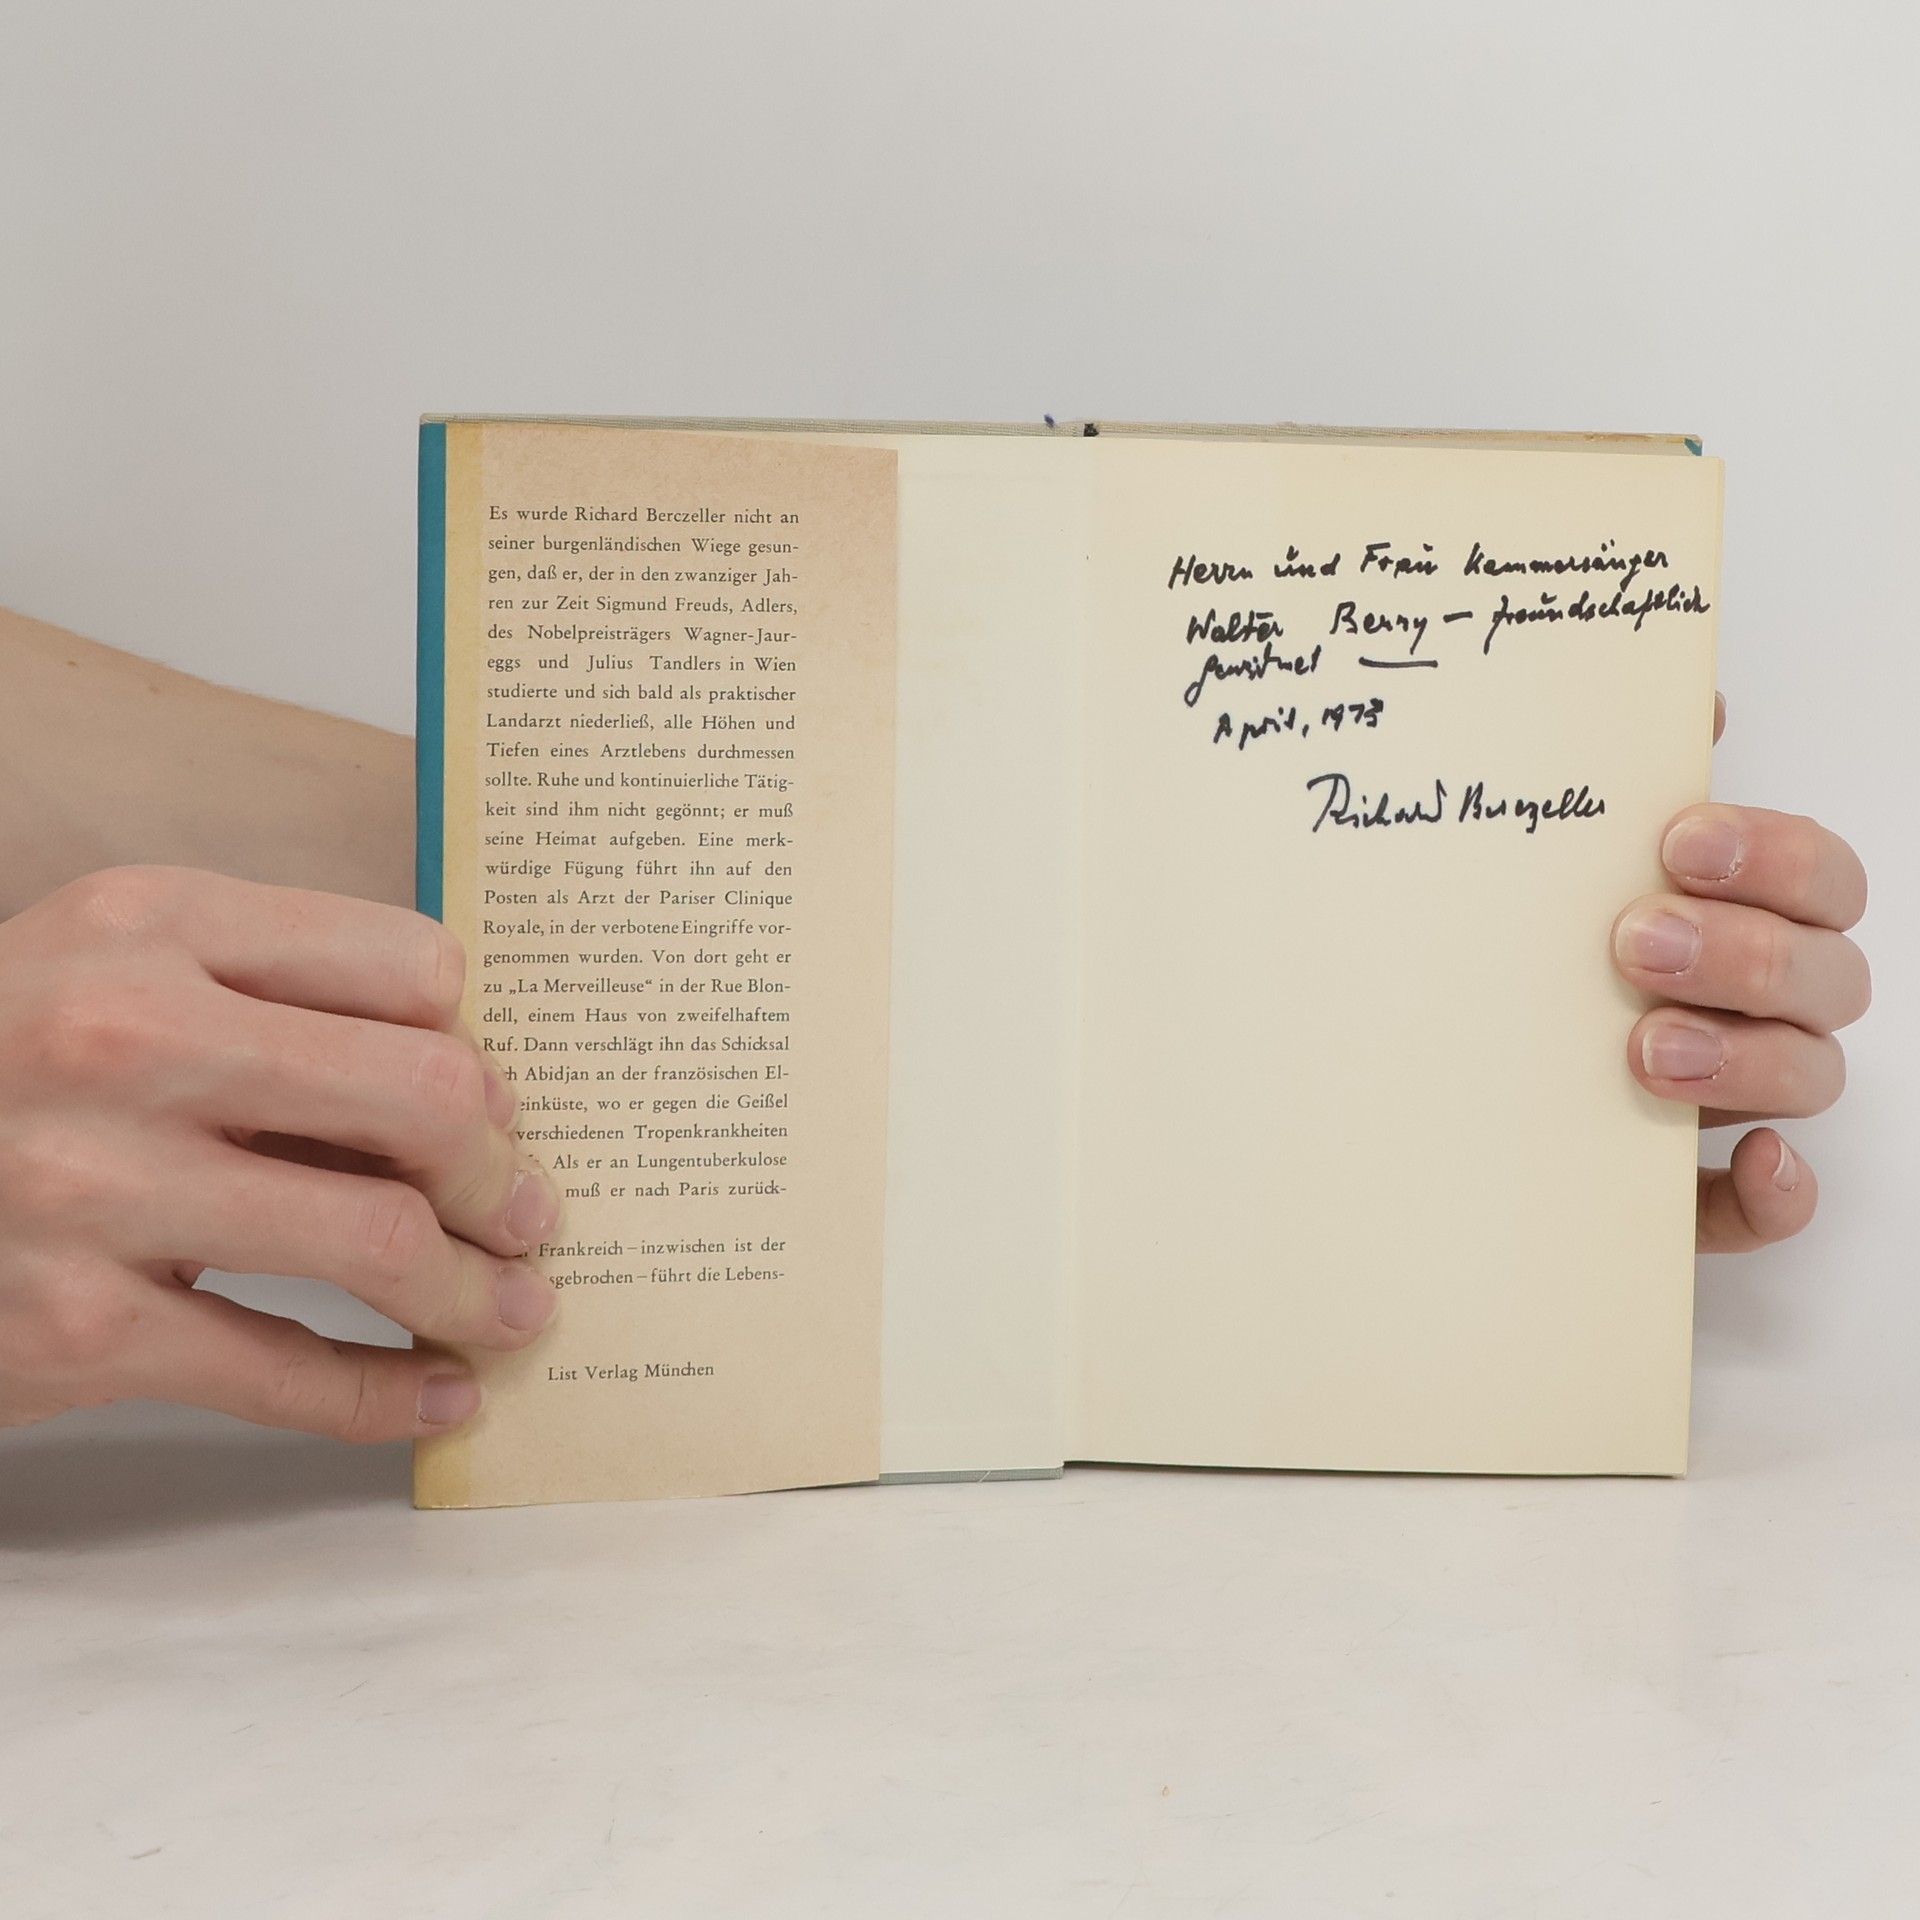 Es wurde Richard Berczeller nicht an
seiner burgenländischen Wiege gesun-
gen, daß er, der in den zwanziger Jah-
ren zur Zeit Sigmund Freuds, Adlers,
des Nobelpreisträgers Wagner-Jaur-
eggs und Julius Tandlers in Wien
studierte und sich bald als praktischer
Landarzt niederließ, alle Höhen und
Tiefen eines Arztlebens durchmessen
sollte. Ruhe und kontinuierliche Tätig-
keit sind ihm nicht gegönnt; er muß
seine Heimat aufgeben. Eine merk-
würdige Fügung führt ihn auf den
Posten als Arzt der Pariser Clinique
Royale, in der verbotene Eingriffe vor-
genommen wurden. Von dort geht er
zu „La Merveilleuse“ in der Rue Blon-
dell, einem Haus von zweifelhaftem
Ruf. Dann verschlägt ihn das Schicksal
Abidjan an der französischen El-
einküste, wo er gegen die Geißel
verschiedenen Tropenkrankheiten
Als er an Lungentuberkulose
muß er nach Paris zurück-
Frankreich – inzwischen ist der
sgebrochen – führt die Lebens-
List Verlag München
Herrn und Frau Kammersänger
Walter Berry — freundschaftlich
gewidmet —
April, 1973
Richard Berczeller